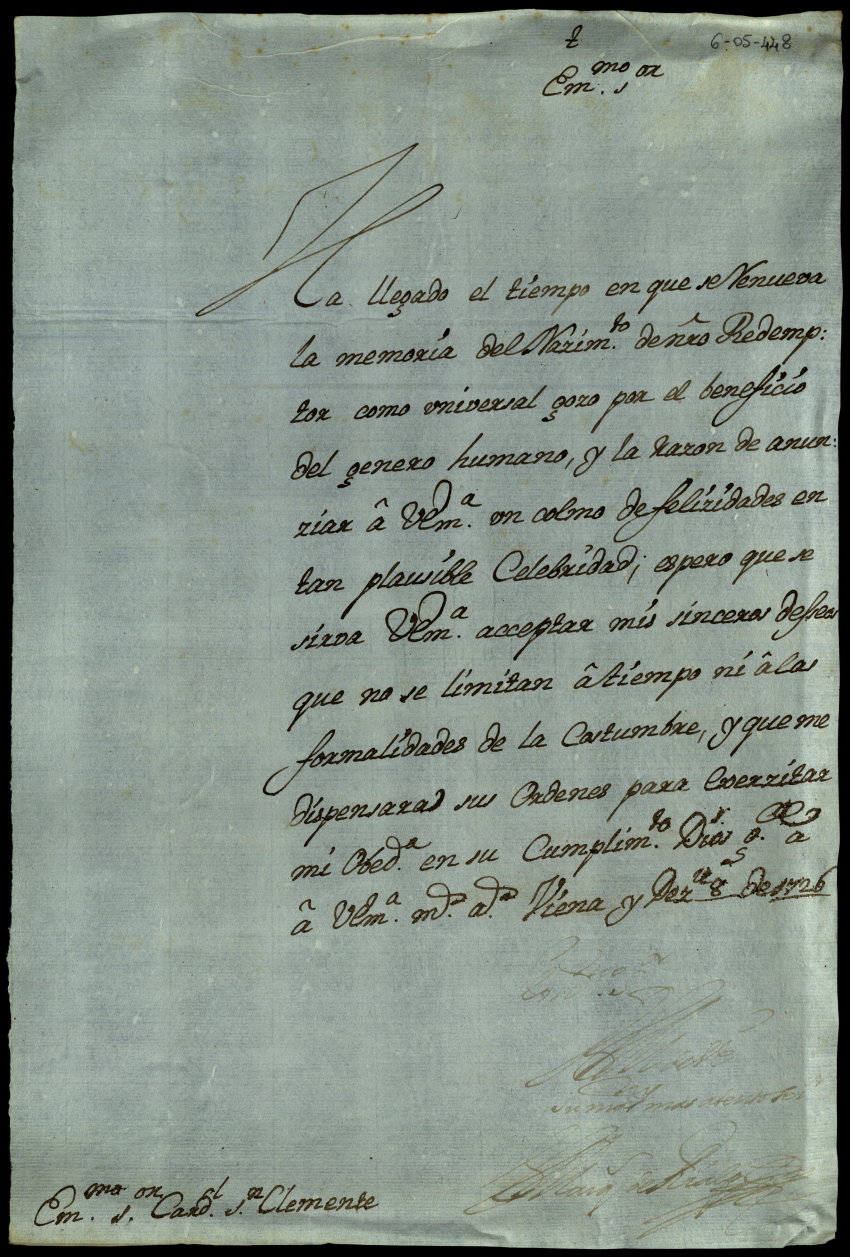 6-05-448
t
Em.mo s.or
Ha llegado el tiempo en que se Renueva
la memoria del Nazim.to de nr̃o Redemp:
tor como vniversal gozo por el beneficio
del genero humano, y la razon de anun:
ziar â VEm.a un colmo de felizidades en
tan plausible Celebridad; espero que se
sirva VEm.a acceptar mis sinceros desseos
que no se limitan â tiempo ni â las
formalidades de la Costumbre, y que me
dispensarà sus Ordenes para Exerzitar
mi Obed.a en su Cumplim.to Dios g.e
â VEm.a m.s a.s Viena y Dez.re 8 de 1726
Em.mo s.or
su mas atento ser.r
Marq. de
Em.mo s.or Card.l s.n Clemente